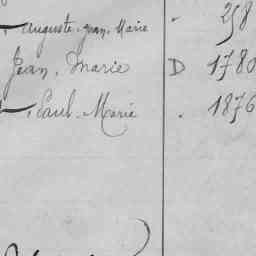 Auguste-Jean. Marie " 258
Jean. Marie D 1780
Paul. Marie . 1876